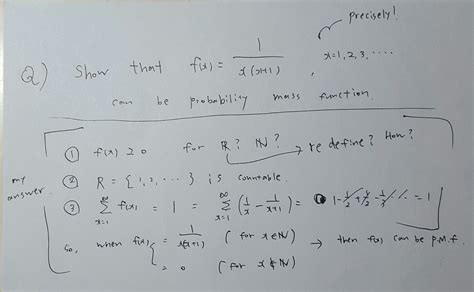 precisely!
Q) Show that f(x) = 1/x(x+1) , x=1, 2, 3, ....
can be probability mass function.
my answer
① f(x) ≥ 0 for ℝ? ℕ? → redefine? How?
② R = {1, 2, ...} is countable.
③ ∞∑x=1 f(x) = 1 = ∞∑x=1 (1/x - 1/x+1) = 1 - 1/2 + 1/2 - 1/3 ... = 1
So, when f(x) { = 1/x(x+1) (for x∈ℕ) → then f(x) can be p.m.f.
= 0 (for x∉ℕ)